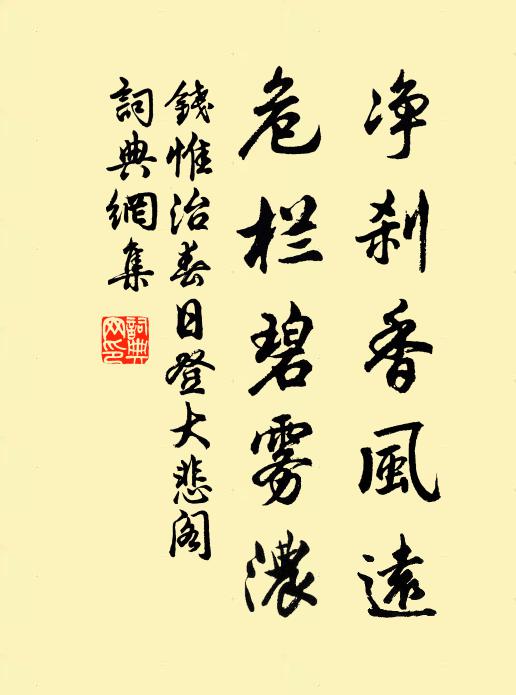 净刹香風遠
危栏碧雾濃
錢惟治春日登大悲阁
詞典網集
詞典网印